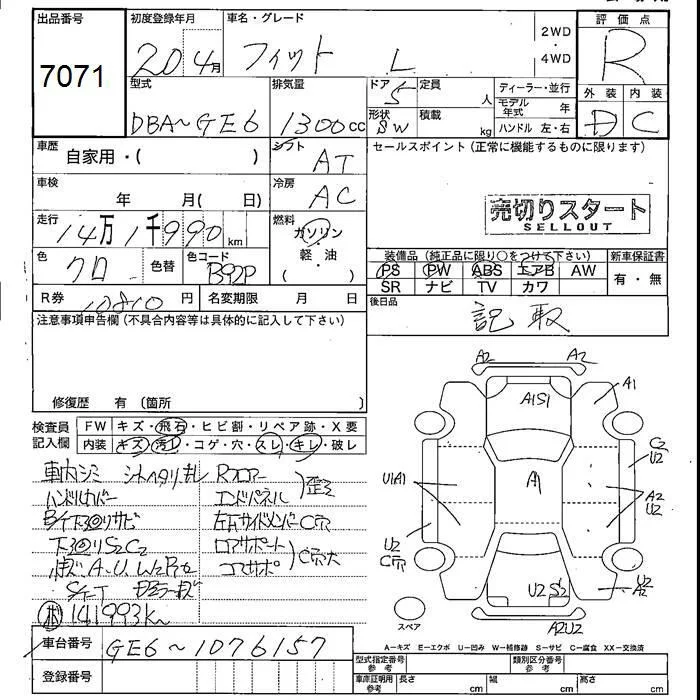 出品番号
7071
初度登録年月
20 4月
車名・グレード
フィット L
2WD
・
4WD
評価点
R
外装 内装
D C
型式
DBA-GE6
排気量
1300cc
ドア
5
定員
人
形状
SW
積載
kg
ディーラー・並行
モデル年式 年
ハンドル 左・右
車歴
自家用・( )
シフト
AT
セールスポイント(正常に機能するものに限ります)
車検
年 月( 日)
冷房
AC
売切りスタート
SELLOUT
走行
14万1千990km
燃料
ガソリン
・
軽・油
( )
色
クロ
色替
色コード
B92P
装備品(純正品に限り○をつけて下さい)
PS PW ABS エアB AW
SR ナビ TV カワ
新車保証書
有・無
R券
10810円
名変期限 月 日
後日品
記取
注意事項申告欄(不具合内容等は具体的に記入して下さい)
修復歴 有(箇所
検査員
記入欄
FW キズ・飛石・ヒビ割・リペア跡・X要
内装 キズ・汚レ・コゲ・穴・スレ・キレ・破レ
車内シミ
Rフロアー
エンドパネル
歪ミ
ハンドルカバー
下回りサビ
下回りS2C2
A.U
141993K
A2 A2
A1S1
A1
A1
C2
U2
U1A1
A2
U2
U2
U2 S2
A2
A2U2
スペア
A-キズ E-エクボ U-凹み W-補修跡 S-サビ C-腐食 XX-交換済
車台番号
GE6-1076157
登録番号
型式指定番号
参考
類別区分番号
参考
車庫証明用
参考
長さ cm
幅 cm
高さ cm